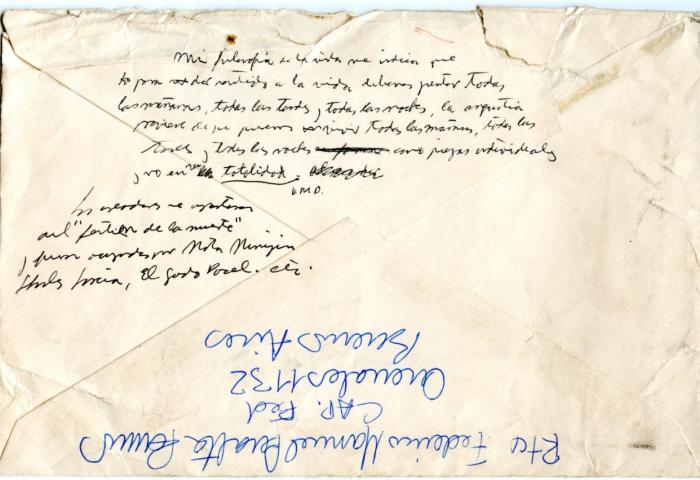 Mi filosofía de la vida me indica que
para darle sentido a la vida debemos perder todas
las mañanas, todas las tardes y todas las noches, la angustia
proviene de que queremos todas las mañanas, todas las
tardes y todas las noches como piezas individuales
y no en totalidad.
F.M.D.
Los me
al "de la muerte"
y fueron por Marta Minujín
Charly García, El Gordo Porcel. etc.
Rte Federico Manuel Peralta Ramos
CAP. Fed
Arenales 1132
Buenos Aires